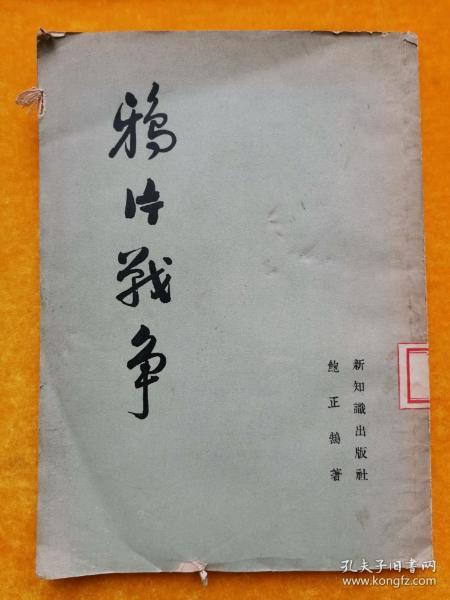 鴉片戰争
新知識出版社
鮑正鵠著
孔夫子旧书网
www.kongfz.com